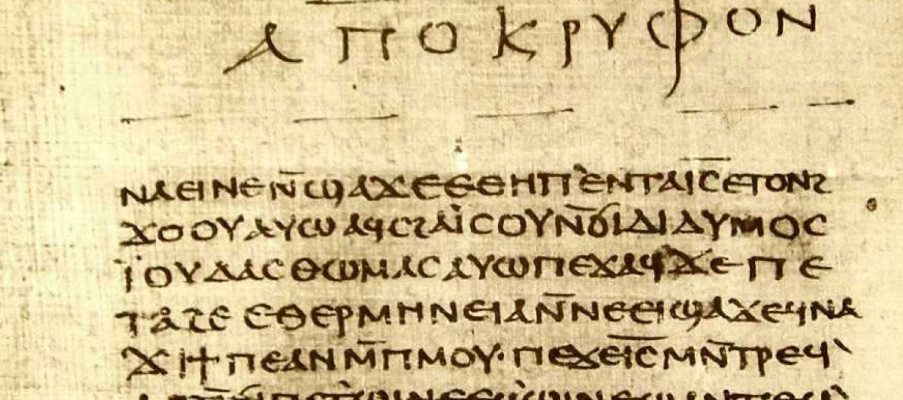 ⲁⲡⲟⲕⲣⲩⲫⲟⲛ
ⲛⲁⲉⲓ ⲛⲉ ⲛ̄ϣⲁϫⲉ ⲉⲑⲏⲡ` ⲉⲛⲧⲁⲓ̅ⲥ̅ ⲉⲧⲟⲛϩ
ϫⲟⲟⲩ ⲁⲩⲱ ⲁϥⲥϩⲁⲓ̈ⲥⲟⲩ ⲛ̄ϭⲓ ⲇⲓⲇⲩⲙⲟⲥ
ⲓ̈ⲟⲩⲇⲁⲥ ⲑⲱⲙⲁⲥ ⲁⲩⲱ ⲡⲉϫⲁϥ ϫⲉ ⲡⲉ
ⲧⲁϩⲉ ⲉⲑⲉⲣⲙⲏⲛⲉⲓⲁ ⲛ̄ⲛⲉⲉⲓϣⲁϫⲉ ϥⲛⲁ
ϫⲓ ϯⲡⲉ ⲁⲛ ⲙ̄ⲡⲙⲟⲩ· ⲡⲉϫⲉ ⲓ̅ⲥ̅ ⲙⲛ̄ⲧⲣⲉϥ`